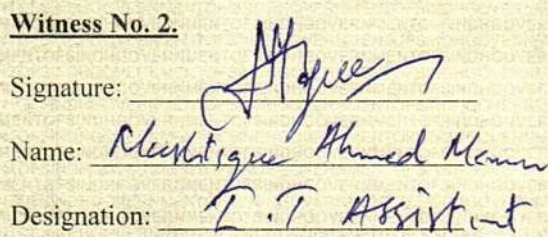 Witness No. 2.
Signature:
Name: Mushtique Ahmed Memon
Designation: I.T Assistant